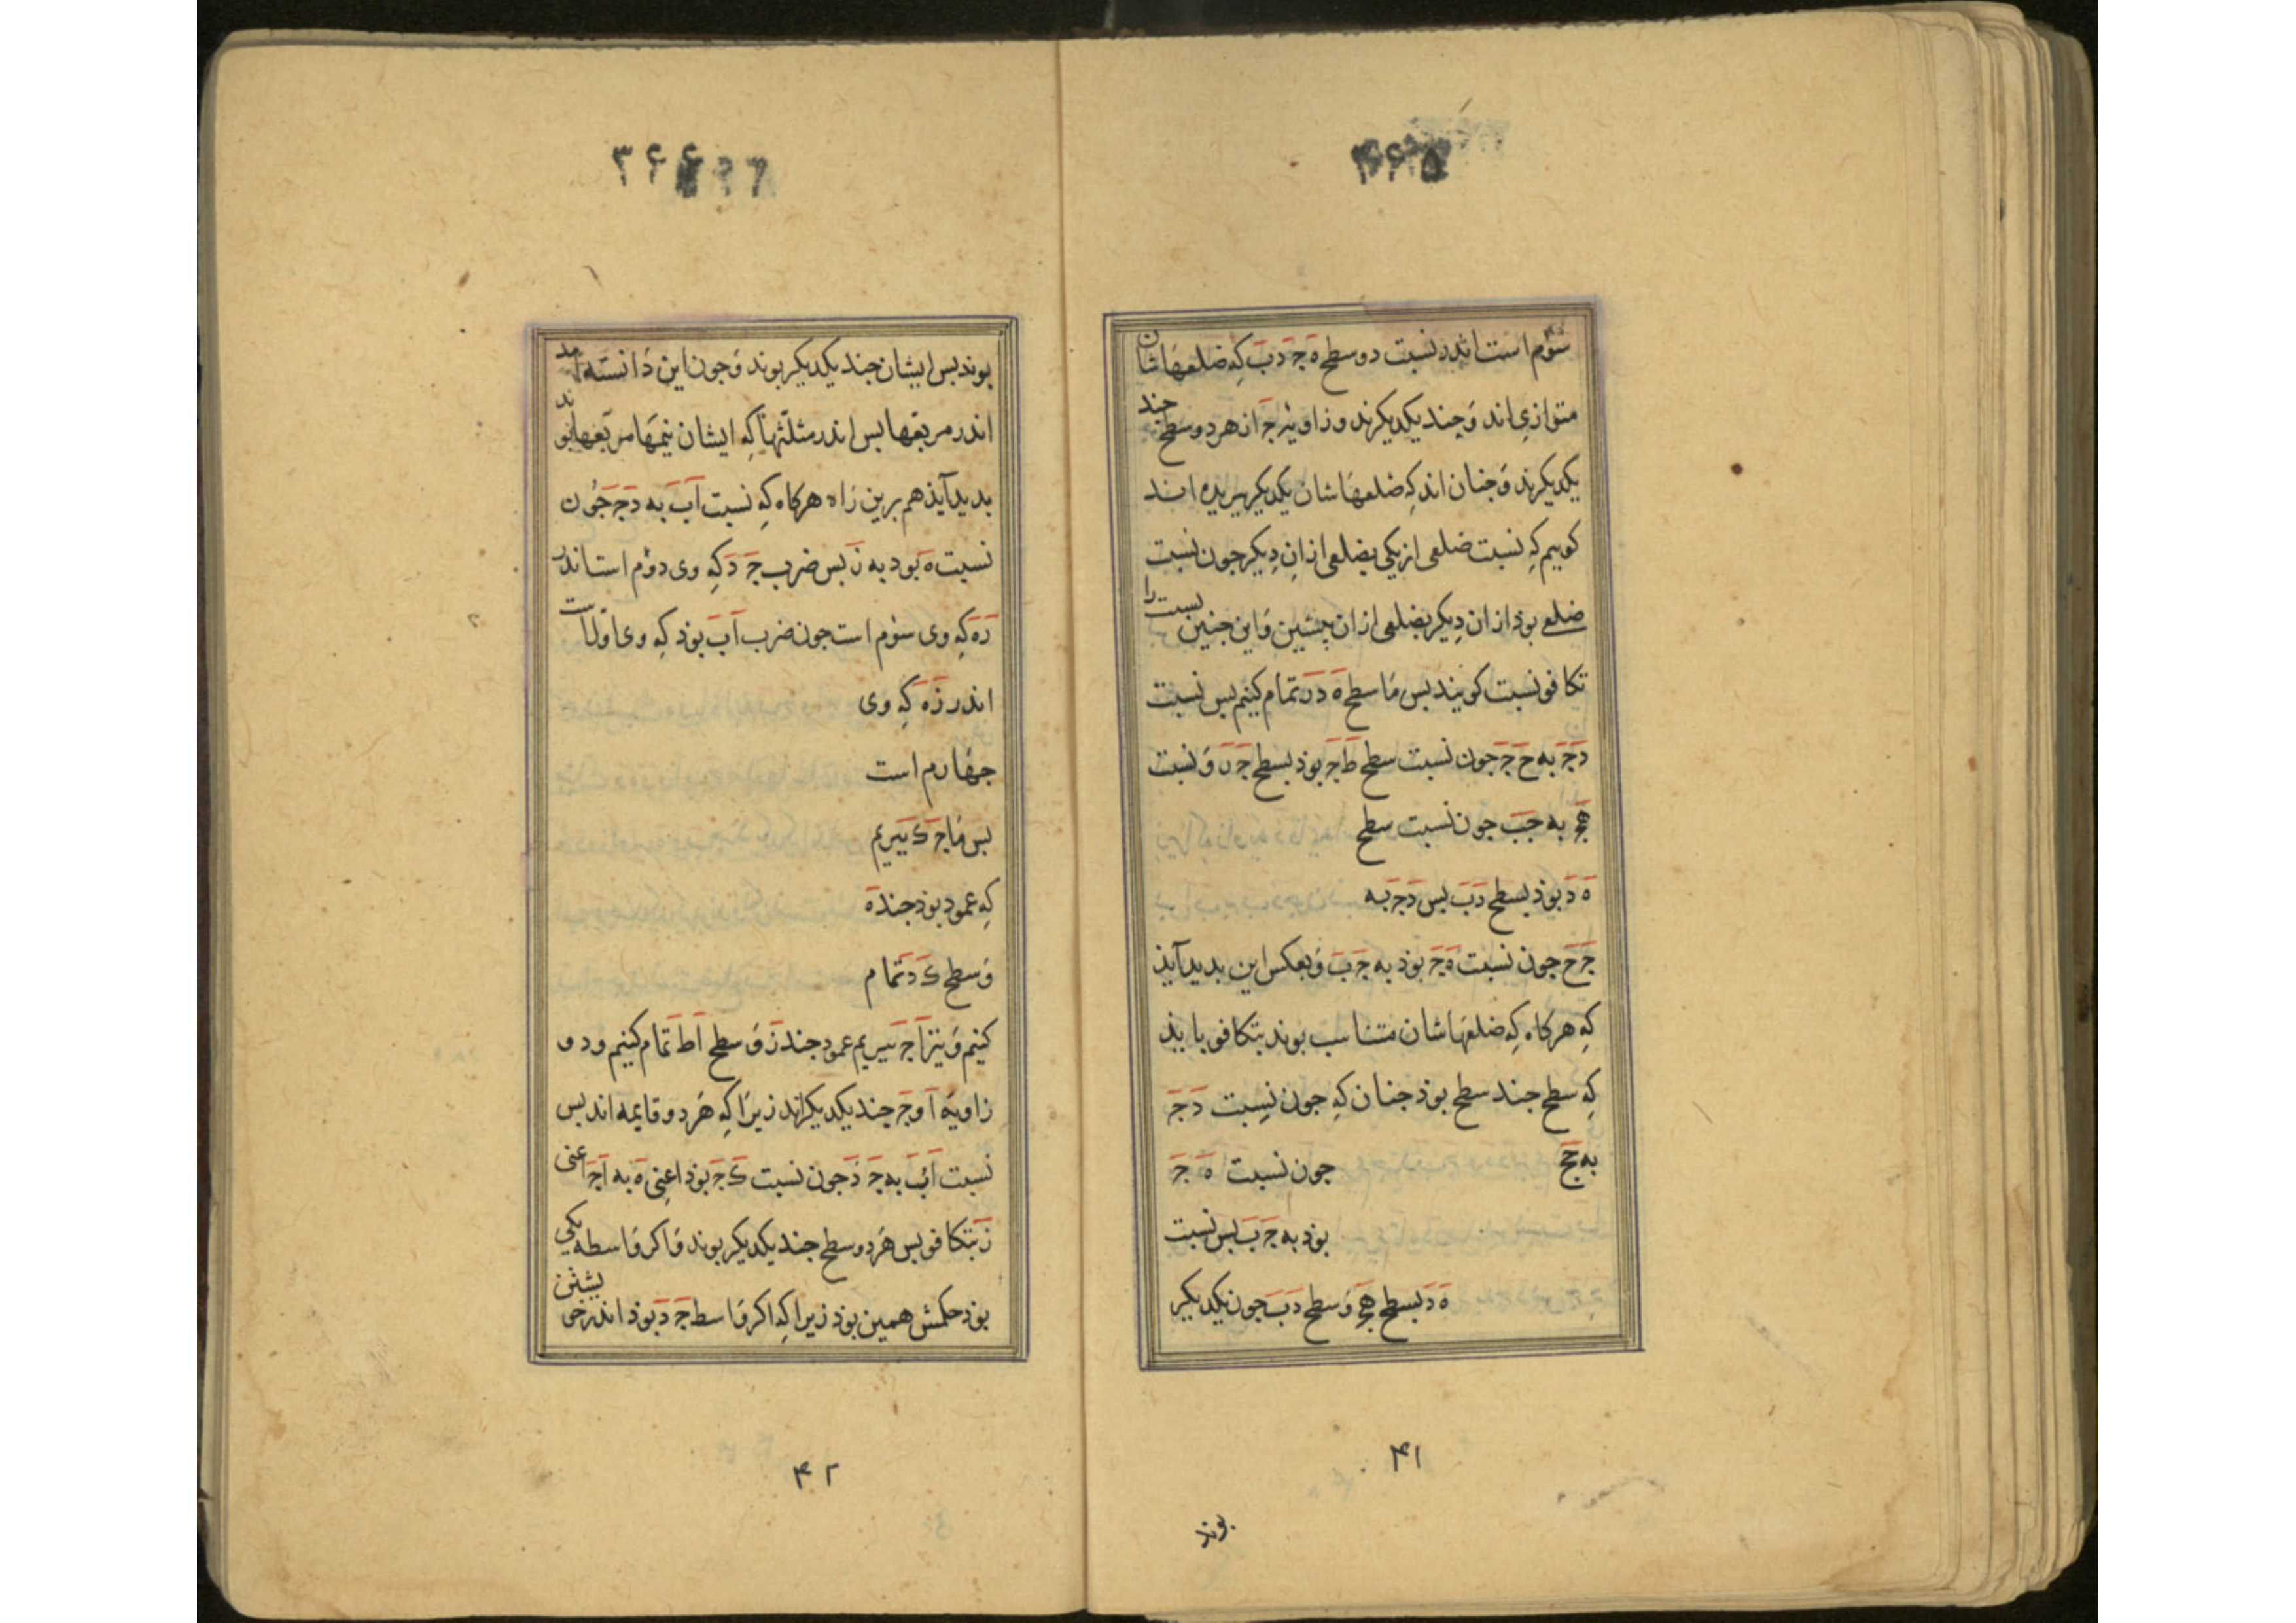 ۳۶۵
سوم است اندر نسبت دو سطح ه ج د ب که ضلعهاشان
متوازی اند و چند یکدیکرند و زاویه ج از هر دو سطح چند
یکدیکرند و جنان اند که ضلعهاشان یکدیکر ببریده اند
کوییم که نسبت ضلعی از یکی بضلعی از ان دیکر جون نسبت
ضلعی بوذ از ان دیکر بضلعی از ان پیشین و این جنین نسبت را
تکافو نسبت کویند بس ما سطح ه د ر تمام کنیم بس نسبت
د ج به ح ج جون نسبت سطح ط ج بوذ بسطح ج ر و نسبت
ه ج به ج ب جون نسبت سطح
ه د بوذ بسطح د ب بس د ج به
ج ح جون نسبت ه ج بوذ به ج ب و بعکس این بدید آیذ
که هرکاه که ضلعهاشان متناسب بوند بتکافو بایذ
که سطح جند سطح بوذ جنان که جون نسبت د ج
به ج ح جون نسبت ه ج
بوذ به ج ب بس نسبت
ه د بسطح ه ح و سطح د ب جون یکدیکر
۴۱
بوند
۳۶۶
بوند بس ایشان جند یکدیکر بوند و جون این دانسته آمد
اندر مربعها بس اندر مثلثها که ایشان نیمها مربعها بوند
بدید آیذ هم برین راه هرکاه که نسبت آ ب به د ج جون
نسبت ه بود به ز بس ضرب ج د که وی دوم است اندر
ر ه که وی سوم است جون ضرب آ ب بوذ که وی اول است
اندر ز ه که وی
جهارم است
بس ما ج ک ببریم
که عمود بوذ جند ه
و سطح ک د تمام
کنیم و نیز آ ج ببریم عمود جند ز و سطح ا ط تمام کنیم و دو
زاویه آ و ج جند یکدیکراند زیرا که هر دو قایمه اند بس
نسبت آ ب به ج د جون نسبت ک ج بوذ اعنی ه به ا ج اعنی
ز بتکافو بس هر دو سطح جند یکدیکر بوند و اکر واسطه یکی
بوذ حکمش همین بوذ زیرا که اکر واسط ج د بوذ اندر
۴۲